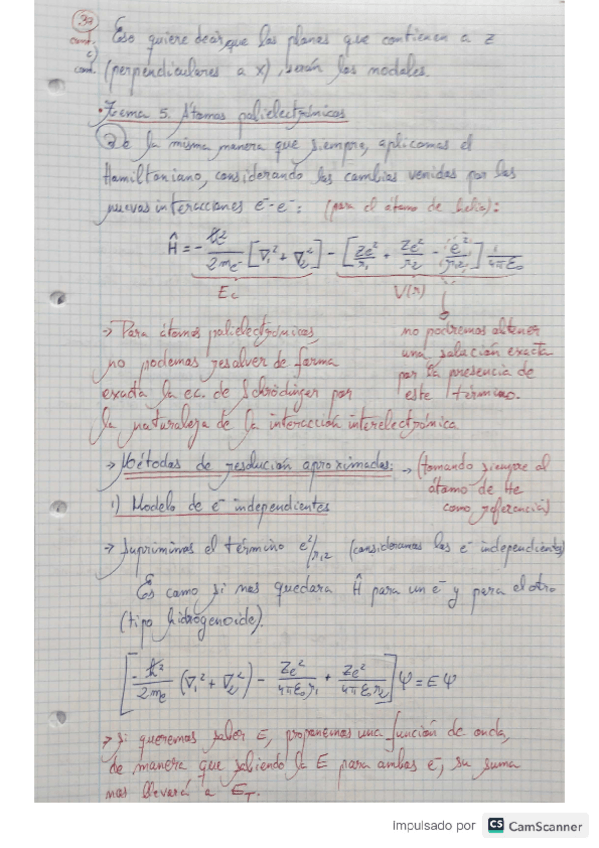 37
cont.
c)
cont.
Eso quiere decir, que los planos que contienen a z
(perpendiculares a x), serán los nodales.
• Tema 5. Átomos polielectrónicos
De la misma manera que siempre, aplicamos el
Hamiltoniano, considerando los cambios venidos por las
nuevas interacciones e⁻-e⁻: (para el átomo de helio):
Ĥ = - ℏ²/2mₑ⁻ [∇₁² + ∇₂²] - [Ze²/r₁ + Ze²/r₂ - e²/r₁₂] 1/4πε₀
Ec V(r)
→ Para átomos polielectrónicos,
no podemos resolver de forma
exacta la ec. de Schrödinger por
la naturaleza de la interacción interelectrónica
no podremos obtener
una solución exacta
por la presencia de
este término.
→ Métodos de resolución aproximados: → (tomando siempre al
átomo de He
como referencia)
1) Modelo de e⁻ independientes
→ Suprimimos el término e²/r₁₂ (consideramos los e⁻ independientes)
Es como si nos quedara Ĥ para un e⁻ y para el otro
(tipo hidrogenoide).
[- ℏ²/2mₑ (∇₁² + ∇₂²) - Ze²/4πε₀r₁ + Ze²/4πε₀r₂] Ψ = EΨ
→ Si queremos saber E, proponemos una función de onda,
de manera que sabiendo la E para ambos e⁻, su suma
nos llevará a E_T.
Impulsado por CS CamScanner